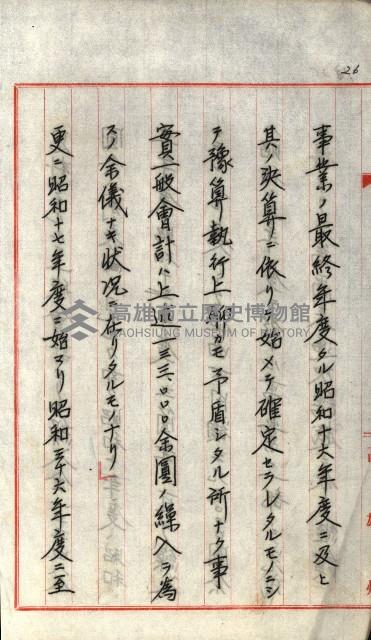 26
事業ノ最終年度タル昭和十六年度ニ及ヒ
其ノ決算ニ依リテ始メテ確定セラレタルモノニシ
テ豫算執行上何カモ矛盾シタル所ナク事
實一般會計ハ上述一三三、〇〇〇余圓ノ繰入ヲ為
スノ余儀ナキ狀況ニ在リタルモノナリ
更ニ昭和十七年度ニ始マリ昭和三十六年度ニ至
高雄市立歷史博物館
KAOHSIUNG MUSEUM OF HISTORY